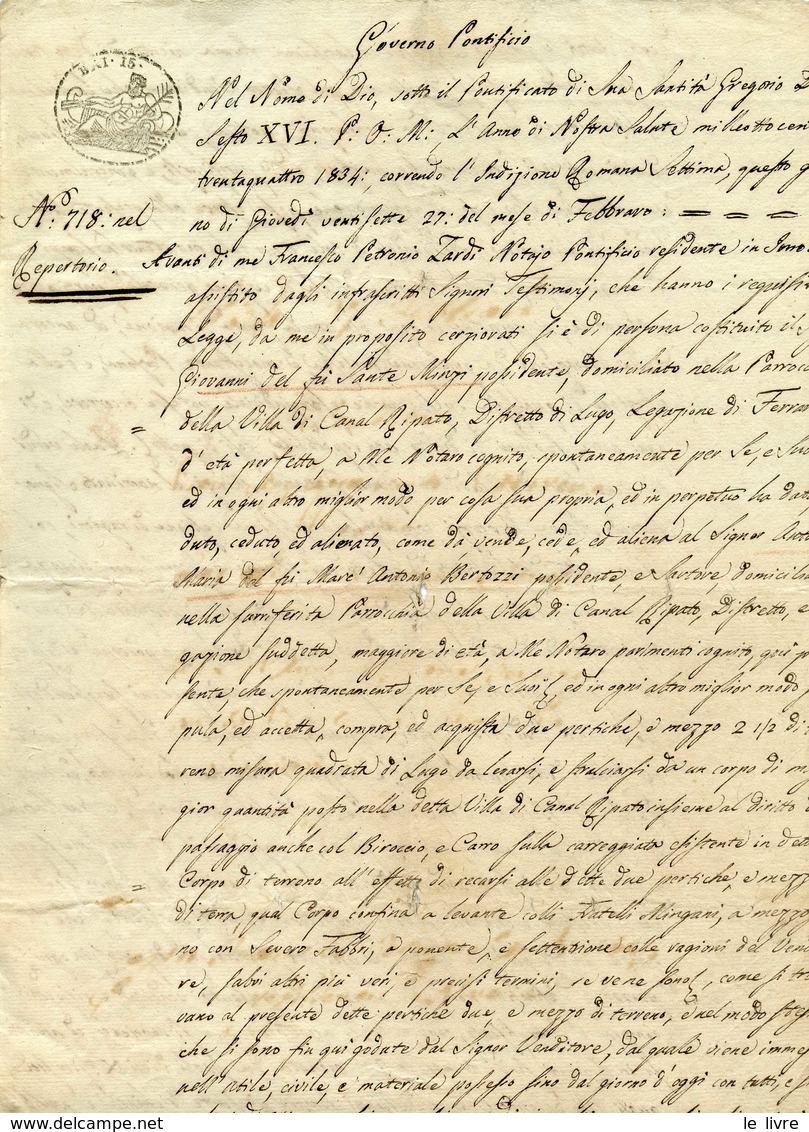 Governo Pontificio
BAI · 15
Nel Nome di Dio, sotto il Pontificato di Sua Santità Gregorio D
Sesto XVI. P: O: M:, L'Anno di Nostra Salute milleottocen
trentaquattro 1834:, correndo l'Indizione Romana Settima, questo g
No: 718: nel
no di Giovedì ventisette 27: del mese di Febbraro: = = =
Repertorio.
Avanti di me Francesco Petronio Zardi Notajo Pontificio residente in
assistito dagli infrascritti Signori Testimonj, che hanno i requisi
Legge, da me in proposito cerziorati si è di persona costituito il
Giovanni del fù Sante Minzi possidente, domiciliato nella Parroc
della Villa di Canal Ripato, Distretto di Lugo, Legazione di Ferrar
=
d'età perfetta, a Me Notaro cognito, spontaneamente per Se, e Suo
ed in ogni altro miglior modo per cosa sua propria, ed in perpetuo ha dat
duto, ceduto, ed alienato, come dà vende, cede, ed aliena al Signor Anto
Maria del fù Marc'Antonio Bertozzi possidente, e Sartore, domicilia
nella surriferita Parrocchia della Villa di Canal Ripato, Distretto, e
gazione suddetta, maggiore di età, a Me Notaro parimenti cognito, quì p
sente, che spontaneamente per Se, e Suoi, ed in ogni altro miglior modo
pula, ed accetta, compra, ed acquista due pertiche, e mezzo 2 1/2 di t
reno misura quadrata di Lugo da levarsi, e stralciarsi da un corpo di m
gior quantità posto nella detta Villa di Canal Ripato insieme al diritto d
passaggio anche col Biroccio, e Carro sulla carreggiata esistente in dett
=
Corpo di terreno all'effetto di recarsi alle dette due pertiche, e mezz
di terra, qual Corpo confina a levante colli Fratelli Mingani, a mezzo
no con Severo Fabbri, a ponente, e settentrione colle ragioni del Vend
re, salvi altri più veri, e precisi termini, se ve ne sono, come si tr
vano al presente dette pertiche due, e mezzo di terreno, e nel modo stes
che si sono fin qui godute dal Signor Venditore, dal quale viene imme
nell'utile, civile, e materiale possesso sino dal giorno d'oggi con tutti, e s
le livre